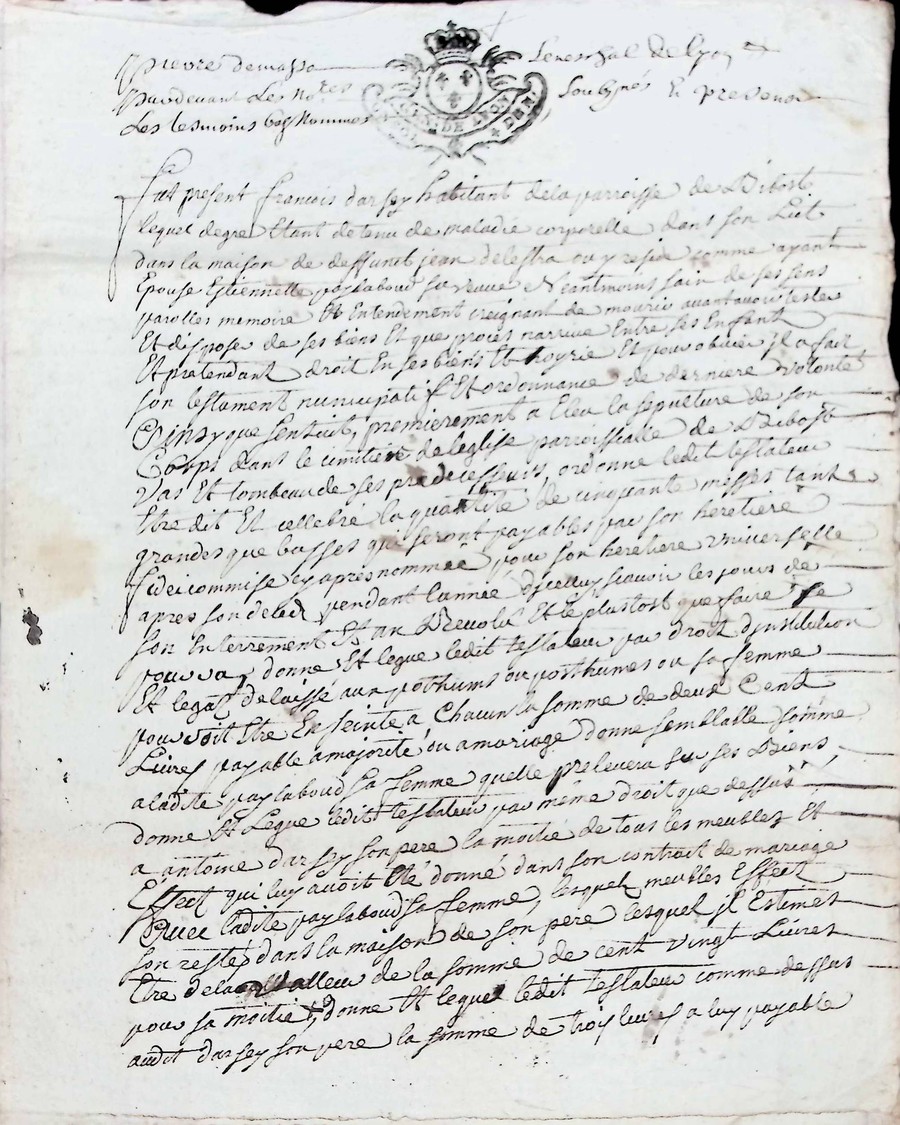 Pierre Senechal de Lyon
Pardevant Les No.res Soubsignés En presence
des tesmoins bas Nommes
GNAL DE LYON
Fut present francois darsey habitant dela parroisse de Bibost
lequel de gre Etant detenu de maladie corporelle dans son Lict
dans la maison de deffunct jean delestra ou y reside comme ayant
Epouse Estiennette paylaboud sa veuve Neantmoins sain de ses sens
parolles memoire Et Entendement creignant de mourir avant avoir teste
Et dispose de ses biens Et que proces narrive Entre ses Enfant
Et pretendant droit En ses biens Et hoyrie Et pour obvier jl a fait
son testament nuncupatif Et ordonnance de derniere volonte
Ainsy que sensuit, premierement a Eleu la sepulture de son
Corps dans le cimitiere de leglise parroissialle de Bibost
Vas Et tombeau de ses predecesseurs, ordonne ledit testateur
Etre dit Et cellebré la quantité de cinquante messes tant
grandes que basses qui seront payables par son heretiere
fideicommise cy apres nommée pour son heretiere universelle
apres son deled pendant lannee dycelluy scavoir les jours de
son Enterrement Et au Bout Et le plustost que faire se
pourra, donne Et legue ledit testateur par droit djnstitution
Et legat delaissé aux posthums ou posthumes ou sa femme
pouvoit Etre Enseinte a Chacun la somme de deux Cent
Livres payable a majorité ou a mariage donne semblable somme
a ladite paylaboud sa femme quelle prelevera sur ses Biens
donne Et Legue ledit testateur par même droit que dessus
a antoine darsey son pere la moitié de tous les meubles Et
Effect qui luy avoit Eté donné dans son contrait de mariage
Avec ladite paylaboud sa femme, lesquel meubles Effect
son restés dans la maison de son pere lesquel jl Estimet
Etre de la valleur de la somme de cent vingt Livres
pour sa moitié, donne Et legue ledit testateur comme dessus
audit darsey son pere la somme de troy livres a luy payable